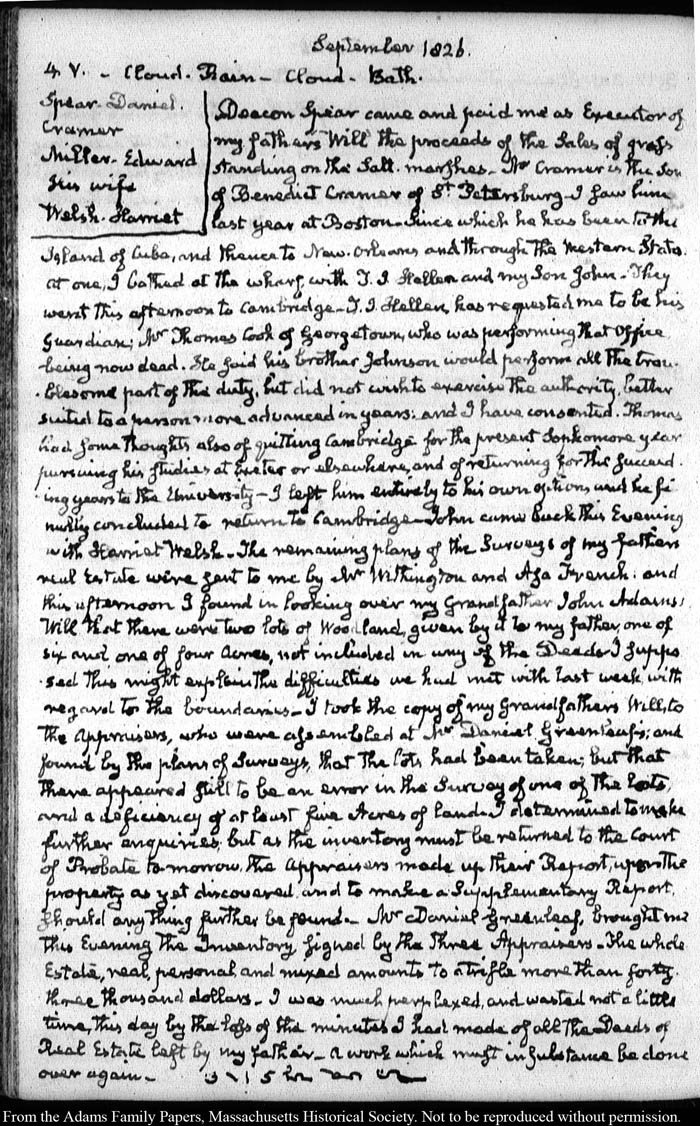 September 1826.
4 V. - Cloud. Rain - Cloud. Bath.
Spear. Daniel.
Cramer
Miller. Edward
His wife
Welsh. Harriet
Deacon Spear came and paid me as Executor of
my father's Will the proceeds of the Sales of grass
standing on the Salt-marshes. Mr Cramer is the Son
of Benedict Cramer of St Petersburg. I saw him
last year at Boston. Since which he has been to the
Island of Cuba, and thence to New-Orleans and through the Western States.
at one, I bathed at the wharf, with T. J. Hellen and my Son John. They
went this afternoon to Cambridge. T. J. Hellen, has requested me to be his
Guardian; Mr Thomas Cook of Georgetown, who was performing that Office
being now dead. He said his brother Johnson would perform all the trou-
blesome part of the duty, but did not wish to exercise the authority, better
suited to a person more advanced in years: and I have consented. Thomas
had some thoughts also of quitting Cambridge for the present Sophomore year
pursuing his studies at Exeter or elsewhere, and of returning for the succeed-
ing years to the University - I left him entirely to his own option, and he fi-
nally concluded to return to Cambridge. John came back this Evening
with Harriet Welsh. The remaining plans of the Surveys of my father's
real Estate were sent to me by Mr Withington and Asa French: and
this afternoon I found in looking over my Grandfather John Adams's
Will that there were two lots of Woodland, given by it to my father, one of
six and one of four Acres, not included in any of the Deeds. I suppo-
sed this might explain the difficulties we had met with last week, with
regard to the boundaries. I took the copy of my Grandfather's Will, to
the Appraisers, who were assembled at Mr Daniel Greenleaf's; and
found by the plans of Surveys, that the lots had been taken; but that
there appeared still to be an error in the Survey of one of the lots,
and a deficiency of at least five Acres of land. I determined to make
further enquiries; but as the inventory must be returned to the Court
of Probate to-morrow, the Appraisers made up their Report, upon the
property as yet discovered, and to make a Supplementary Report,
should any thing further be found. Mr Daniel Greenleaf, brought me
this Evening the Inventory, signed by the three Appraisers. The whole
Estate, real, personal, and mixed amounts to a trifle more than forty-
three thousand dollars. I was much perplexed, and wasted not a little
time, this day by the loss of the minutes I had made of all the Deeds of
Real Estate left by my father. a work which must in substance be done
over again.
From the Adams Family Papers, Massachusetts Historical Society. Not to be reproduced without permission.